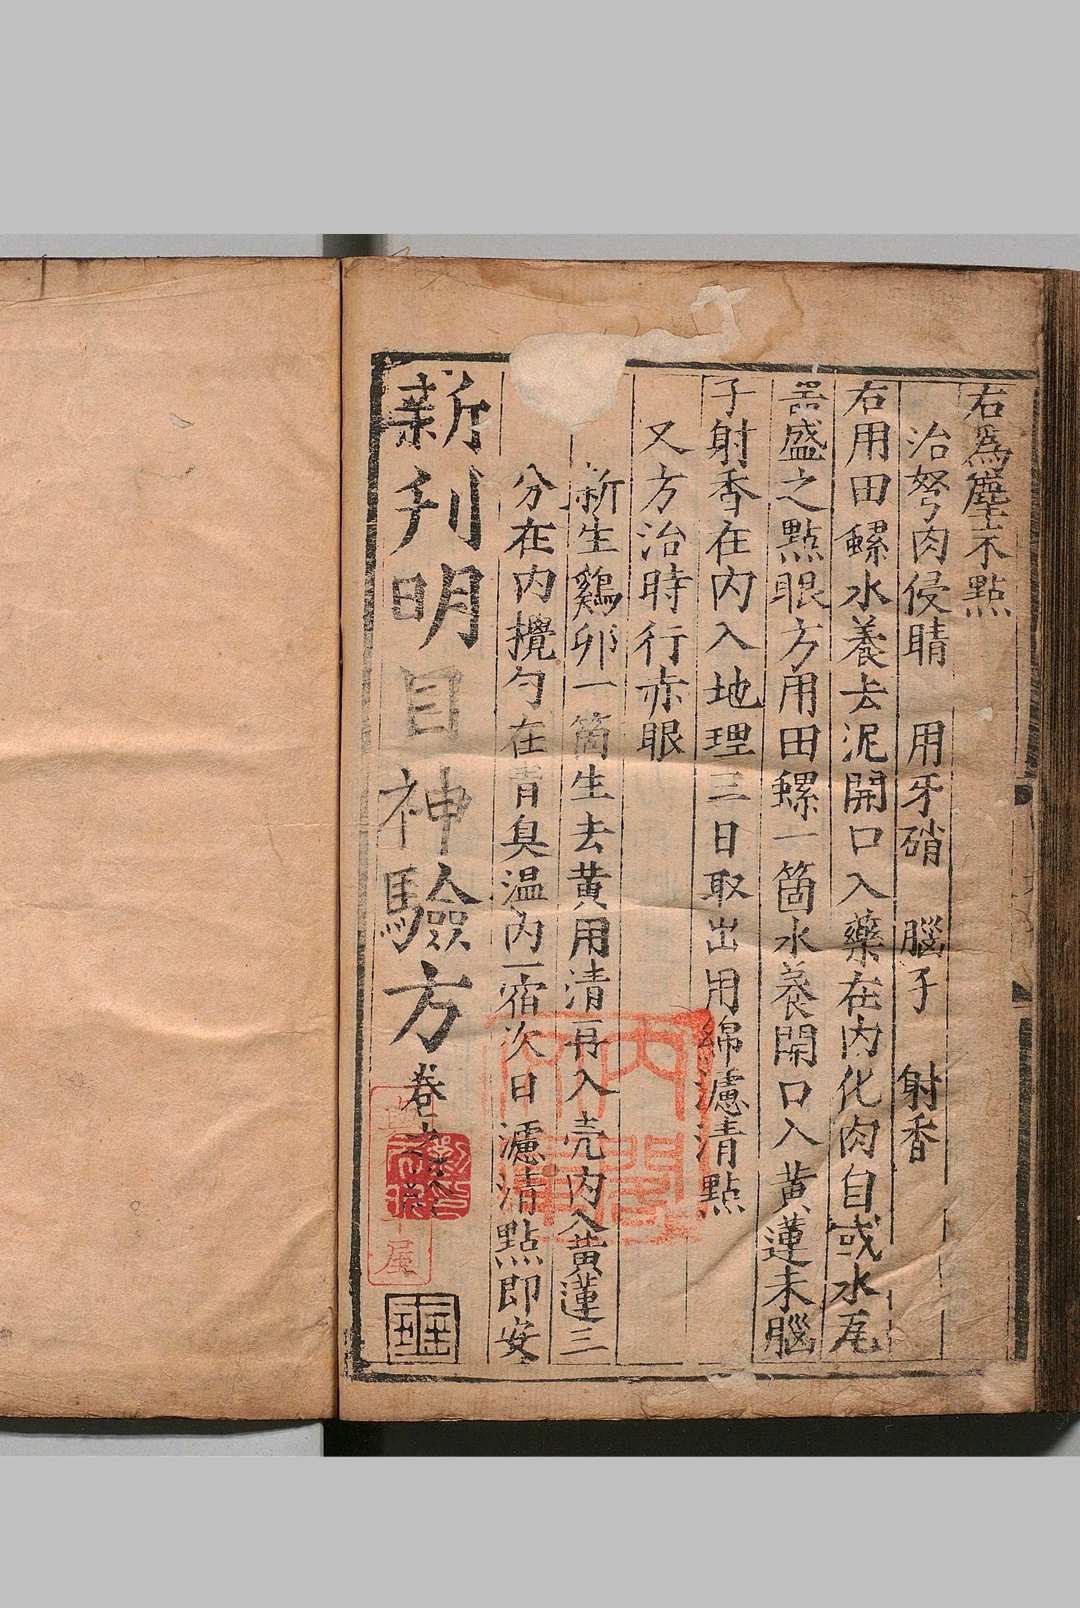 右為塵末點
治弩肉侵睛 用牙硝 腦子 射香
右用田螺水養去泥開口入藥在內化肉自或水瓦
器盛之點眼方用田螺一箇水養開口入黃蓮末腦
子射香在內入地理三日取出用綿濾清點
又方治時行赤眼
新生鷄卵一箇生去黃用清再入壳內入黃蓮三
分在內攪勻在青臭温內一宿次日濾清點即安
新刋明目神驗方卷之
內閣